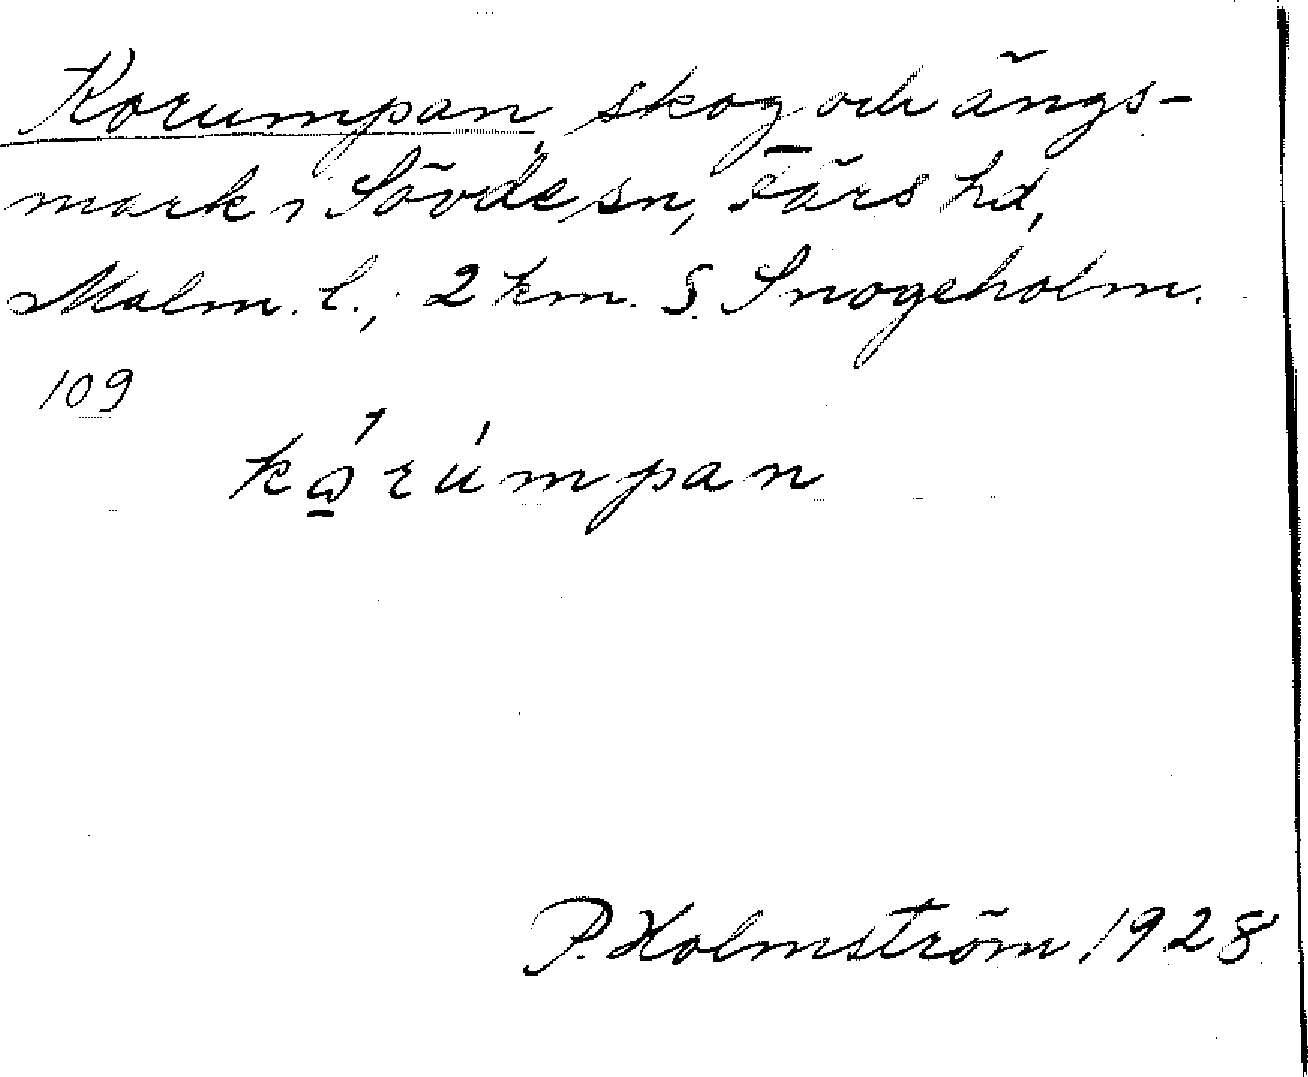 Korumpan, skog och ängs-
mark i Sövde sn, Färs hd,
Malm. l., 2 km. S. Snogeholm.
109
kǫ́rúmpan
P. Holmström 1928